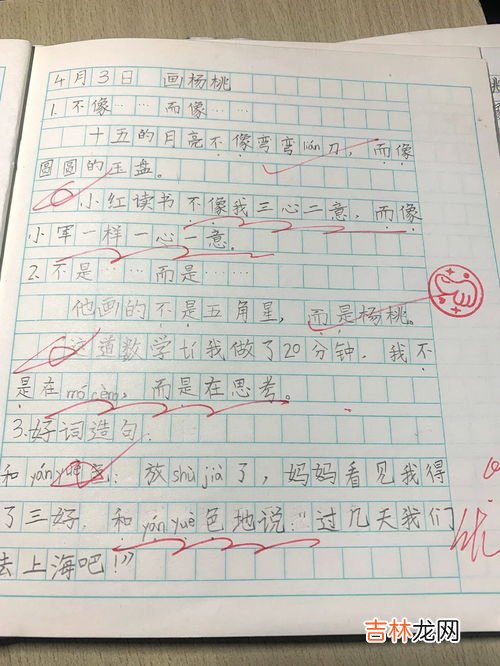 4月3日 画杨桃
1.不像……而像……
十五的月亮不像弯弯lián刀，而像
圆圆的玉盘。
小红读书不像我三心二意，而像
小军一样一心一意。
2.不是……而是……
他画的不是五角星，而是杨桃。
这道数学tí我做了20分钟，我不
是在mó cèng，而是在思考。
3.好词造句：
和yán yuè色：放shǔ jià了，妈妈看见我得
了三好，和yán yuè色地说：“过几天我们
去上海吧！”
优
吉林龙网